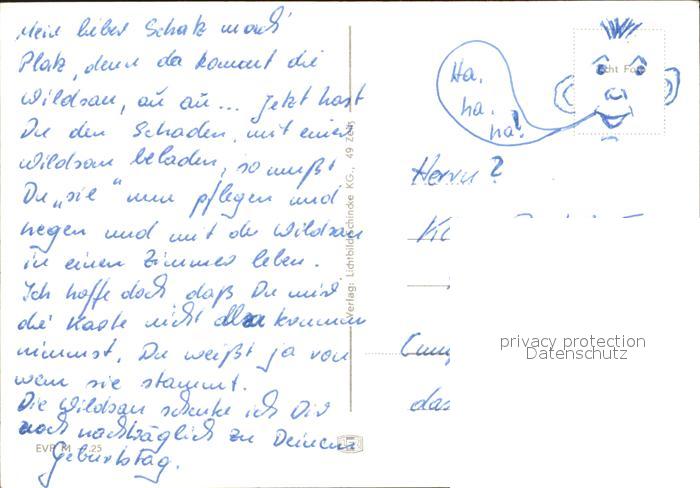 Mein lieber Schatz mach'
Platz, denn da kommt die
Wildsau, au au... Jetzt hast
Du den Schaden, mit einer
Wildsau beladen, so mußt
Du „sie" nun pflegen und
hegen und mit der Wildsau
in einen Zimmer leben.
Ich hoffe doch daß Du mir
die Karte nicht krumm
nimmst, Du weißt ja von
wem sie stammt.
Die Wildsau schenke ich Dir
noch nachträglich zu Deinem
Geburtstag.
EVP M -.25
Verlag: Lichtbild Schincke KG., 49 Zeitz
Ha,
ha,
ha!
Echt Foto
Herrn ?
privacy protection
Datenschutz
das